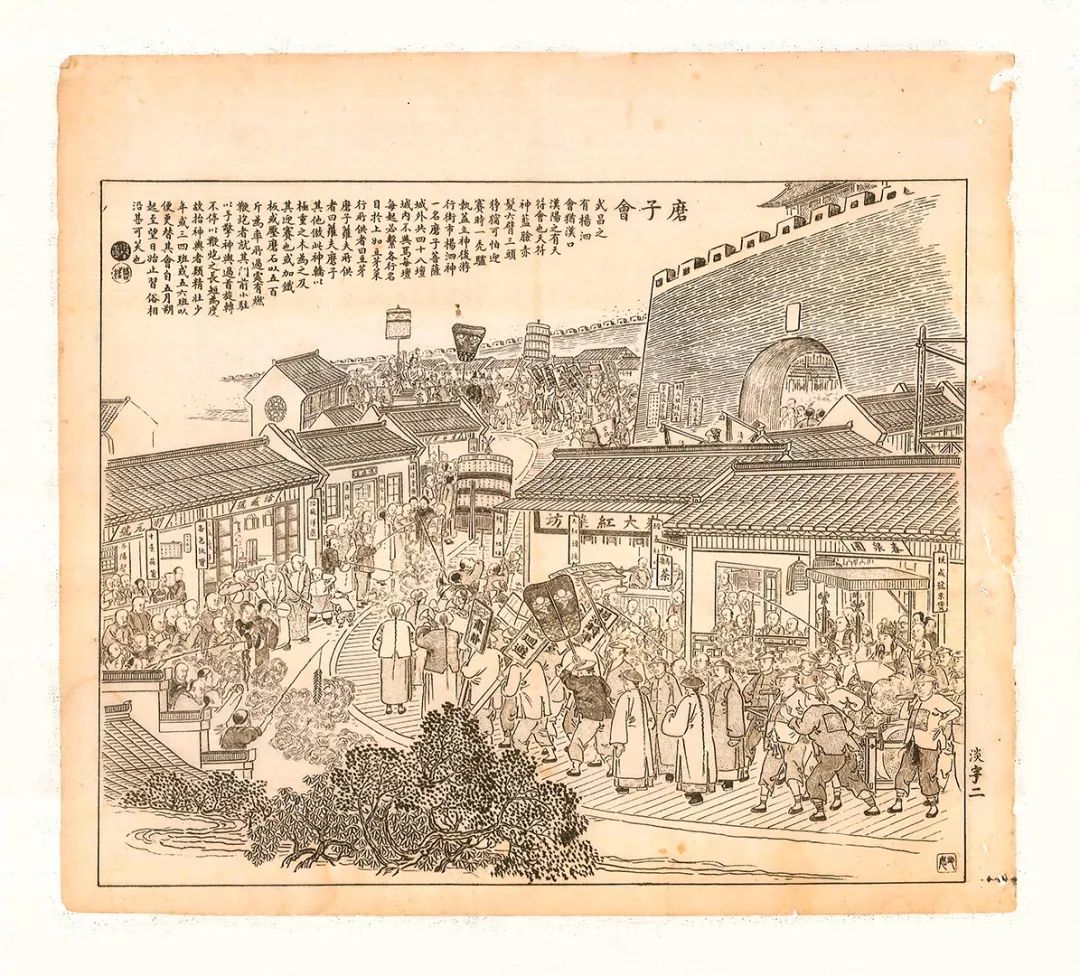 磨子會
武昌之
有楊泗
會猶漢口
漢陽之有天
符會也天符
神藍臉赤
髮六臂三頭
猙獰可怕迎
賽時一先驅
執蓋立神後將
行街市楊泗神
一名磨子菩薩
城外共四十八壇
城內不與焉每壇
每起必繫各行名
目於上如豆芽菜
行所供者曰豆芽
磨子籮夫所供
者曰籮夫磨子
其他倣此神轎以
極重之木為之及
其迎賽也或加鐵
板或壓磨石以五百
斤為率所過處有燃
鞭炮者就其門前小駐
以手擎神輿過首旋轉
不停以鞭炮之長短為度
故抬神輿者類精壯少
年或三四班或五六班以
便更替其會自五月朔
起至望日始止習俗相
沿甚可笑也
大紅染坊
茶
春樂園
迴避
淡字二